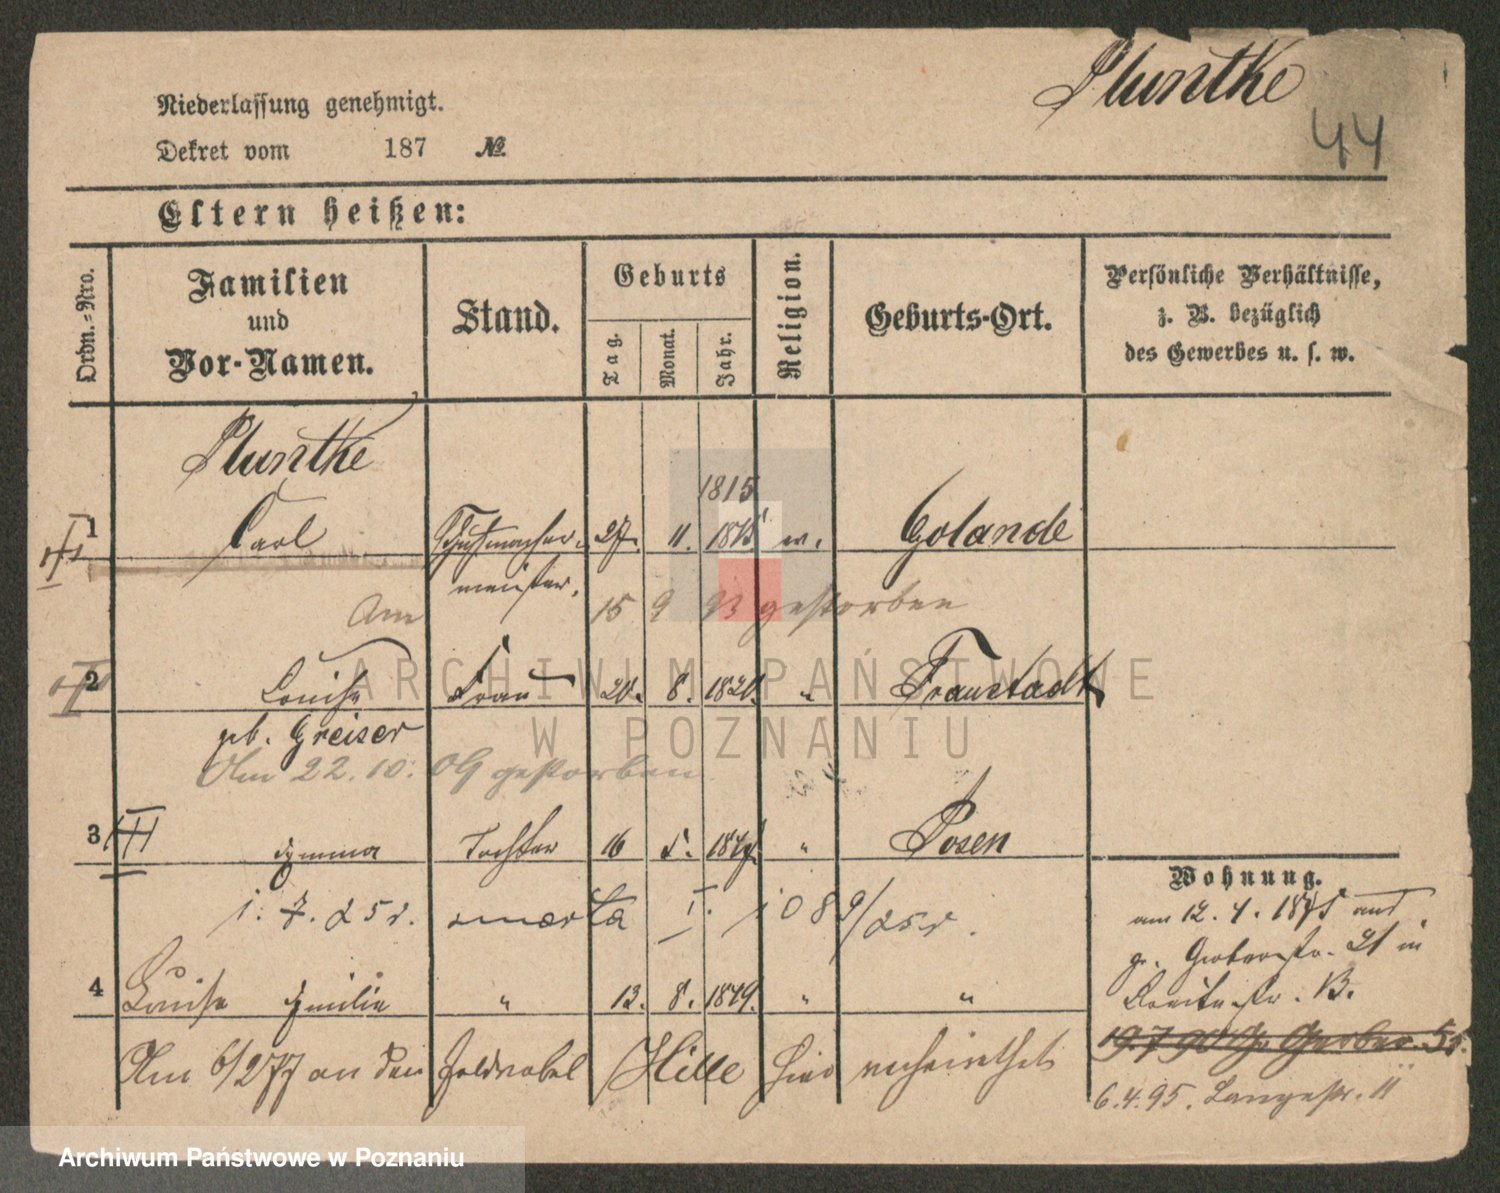 Pluntke
44
Niederlassung genehmigt.
Dekret vom 187 №
Eltern heißen:
Ordn.-Nro.
Familien und Vor-Namen.
Stand.
Geburts
Tag.
Monat.
Jahr.
Religion.
Geburts-Ort.
Persönliche Verhältnisse,
z. B. bezüglich
des Gewerbes u. s. w.
Pluntke
1815
1 Carl Schuhmacher- 27. 11. 1815 ev. Golande
meister.
Am 15 9 93 gestorben
2 Louise Frau 20. 8. 1820. " Fraustadt
geb. Greiser
Am 22. 10. 09 gestorben
3 Emma Tochter 16 5. " Posen
Wohnung.
am 12. 4. 1875 aus
gr. Gerberstr. 21 in
Breitestr. 13.
4 Louise Emilie " 13. 8. 1849. " "
Am 6/2 77 an den Feldwebel Hille hier verheirathet
19.7 90 Gr. Gerber 51.
6.4.95. Langestr. 11
ARCHIWUM PAŃSTWOWE
W POZNANIU
Archiwum Państwowe w Poznaniu